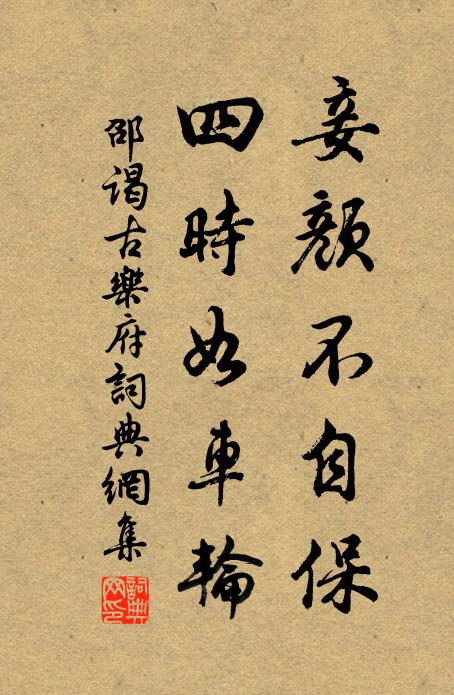 妾顏不自保
四時如車輪
邵謁古樂府詞典網集
詞典網印